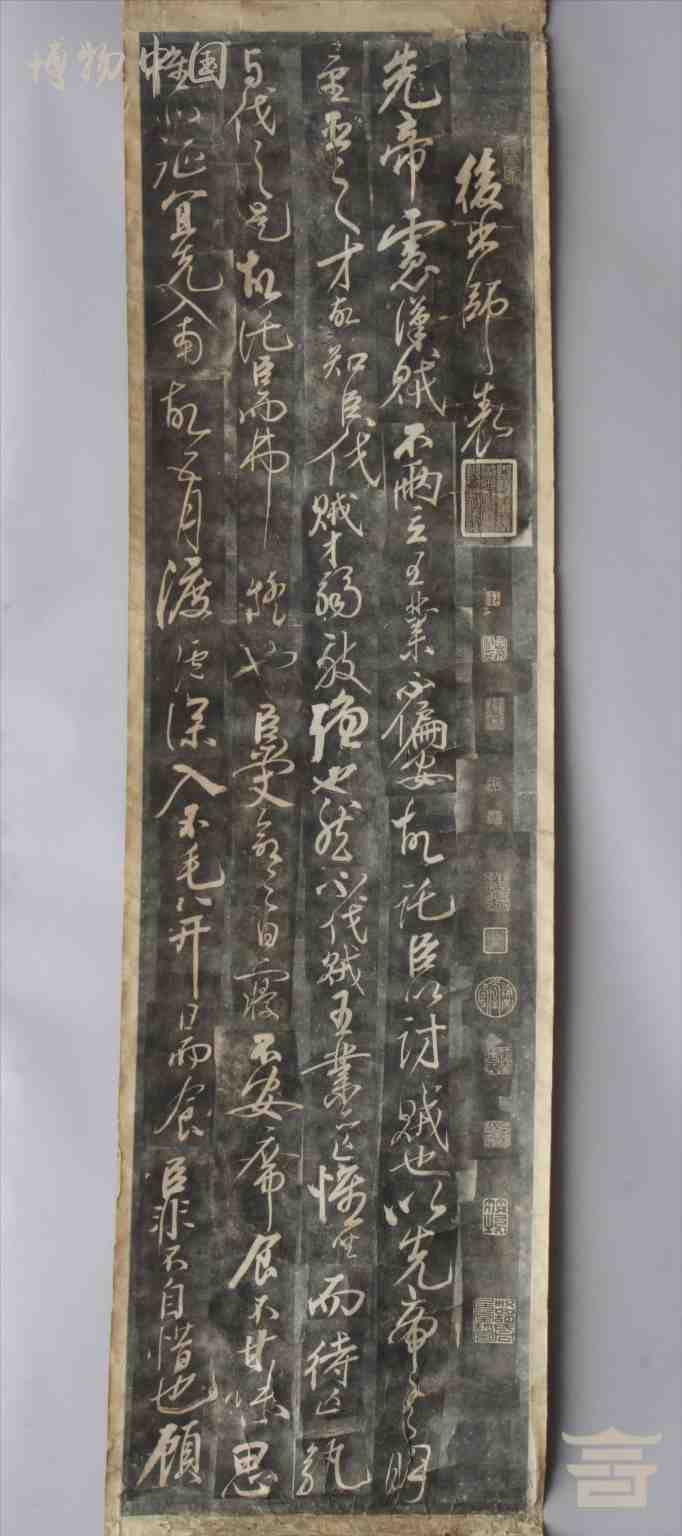 博物中国
後出師表
先帝慮漢賊不兩立王業不偏安故託臣以討賊也以先帝之明
量臣之才故知臣伐賊才弱敵強也然不伐賊王業亦亡惟坐而待亡孰
与伐之是故託臣而弗疑也臣受命之日寢不安席食不甘味思
惟北征宜先入南故五月渡瀘深入不毛并日而食臣非不自惜也顧